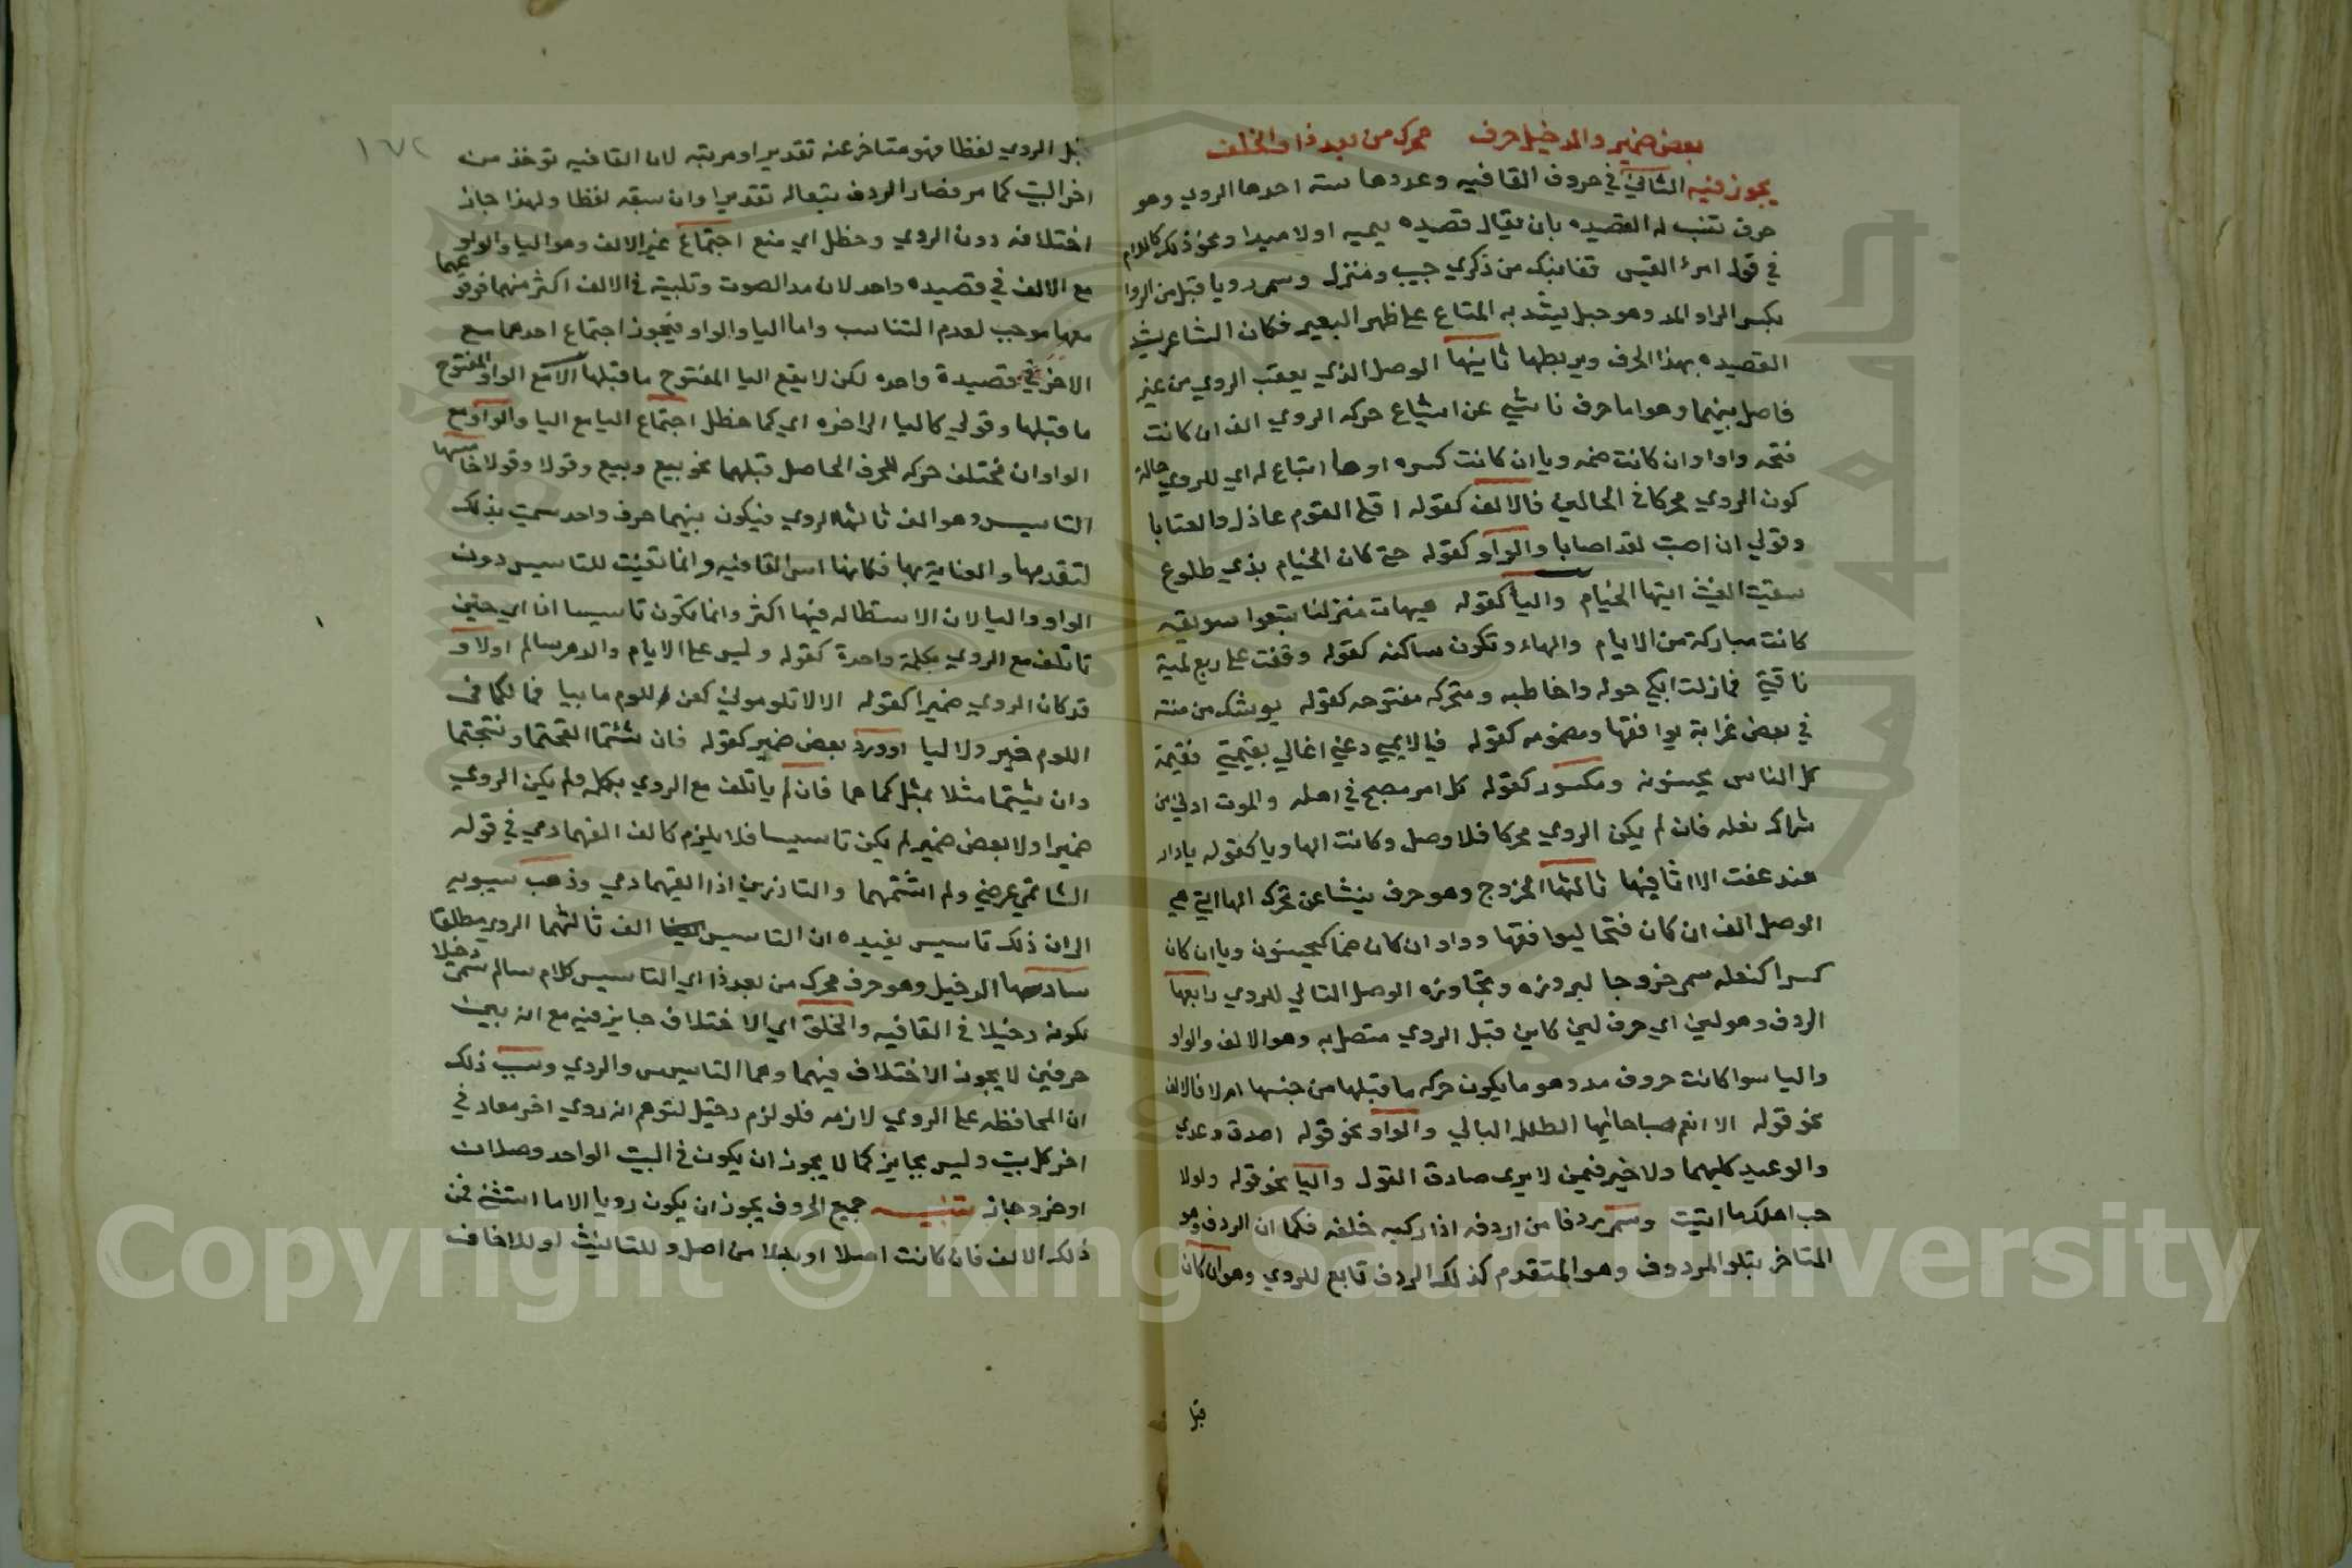 بعض ضمير والدخيل حرف محرك من بعد ذا والخلف
يجوز فيه الثاني في حروف القافيه وعددها سته احدها الروي وهو
حرف تنسب له القصيده بان يقال قصيده يميه او لاميه او نحو ذلك كاللام
في قول امرئ القيس قفا نبك من ذكري حبيب ومنزل وسمي رويا قيل من الروا
بكسر الرا والمد وهو حبل يشد به المتاع علي ظهر البعير فكان الشاعر يشد
القصيده بهذا الحرف ويربطها ثانيها الوصل الذي يعقب الروي من غير
فاصل بينهما وهو اما حرف ناشي عن اشباع حركه الروي الف ان كانت
فتحه واو او ان كانت ضمه ويا ان كانت كسره او ها اتباع له اي للروي حاله
كون الروي محركا في الحالين فالالف كقوله اقلي اللوم عاذل والعتابا
وقولي ان اصبت لقد اصابا والواو كقوله متي كان الخيام بذي طلوع
سقيت الغيث ايتها الخيام واليا كقوله هيهات منزلنا بنعف سويقه
كانت مباركة من الايام والهاء وتكون ساكنه كقوله وقفت علي ربع لمية
ناقتي فما زلت ابكي حوله واخاطبه ومتحركه مفتوحه كقوله يوشك من منته
في بعض غرابة يوافقها ومضمومه كقوله فيا لايمي دعني اغالي بقيمتي فقيمة
كل الناس يحسنونه ومكسوره كقوله كل امر مصبح في اهله والموت ادني من
شراك نعله فان لم يكن الروي محركا فلا وصل وكانت الها رويا كقوله يا دار
هند عفت الا اثافيها ثالثها الخروج وهو حرف ينشا عن تحرك الها التي هي
الوصل الف ان كان فتحا ليوافقها وواو ان كان ضما كيحسنون ويا ان كان
كسرا كنعله سمي خروجا لبروزه وتجاوزه الوصل التالي للروي رابعها
الردف وهو لين اي حرف لين كاين قبل الروي متصل به وهو الالف والواو
واليا سوا كانت حروف مد وهو ما يكون حركه ما قبلها من جنسها ام لا فالالف
نحو قوله الا انعم صباحا ايها الطلل البالي والواو نحو قوله اصدق وعدي
والوعيد كليهما ولا خير فيمن لا يري صادق القول واليا نحو قوله ولولا
حب اهلك ما اتيت وسمي ردفا من اردفه اذا ركبه خلفه فكما ان الردف وهو
المتاخر يتلو المردوف وهو المتقدم كذلك الردف تابع للروي وهو ان كان
قبل
١٦٢
قبل الروي لفظا فهو متاخر عنه تقديرا ومرتبه لان القافيه توخذ من
اخر البيت كما مر فصار الردف بتعاله تقديرا وان سبقه لفظا ولهذا جاز
اختلافه دون الروي وحظل اي منع اجتماع غير الالف وهو اليا والواو
مع الالف في قصيده واحد لان مد الصوت وتلبيته في الالف اكثر منهما فوقوعهما
معها موجب لعدم التناسب واما اليا والواو فيجوز اجتماع احدهما مع
الاخر في قصيدة واحده لكن لا يقع اليا المفتوح ما قبلها الا مع الواو المفتوح
ما قبلها وقولي كاليا الي اخره اي كما حظل اجتماع اليا مع اليا والواو مع
الواو ان تختلف حركه للحرف الحاصل قبلهما نحو بيع وبيع وقولا وقولا خامسها
التاسيس وهو الف ثالثها الروي فيكون بينهما حرف واحد سميت بذلك
لتقدمها والعناية بها فكانها اس القافيه وانما تعينت للتاسيس دون
الواو واليا لان الاستطاله فيها اكثر وانما تكون تاسيسا ان اي حين
تاتلف مع الروي بكلمة واحدة كقوله وليس علي الايام والدهر سالم او لا و
قد كان الروي ضميرا كقوله الا لا تلوموني كفي اللوم ما بيا فما لكما في
اللوم خير ولا ليا او ورد بعض ضمير كقوله فان شئتما القحتما ونتجتما
وان شيتما مثلا بمثل كما هما فان لم ياتلف مع الروي بكلمه ولم يكن الروي
ضميرا ولا بعض ضمير لم يكن تاسيسا فلا يلزم كالف القهما دمي في قوله
الشاتمي عرضي ولم اشتمهما والناذرين اذا القيهما دمي وذهب سيبويه
الي ان ذلك تاسيس يفيده ان التاسيس الف ثالثهما الروي مطلقا
سادسها الدخيل وهو حرف محرك من بعد ذا اي التاسيس كلام سالم سمي دخيلا
لكونه دخيلا في القافيه والخلف اي الاختلاف جايز فيه مع انه بين
حرفين لا يجوز الاختلاف فيهما وهما التاسيس والروي وسبب ذلك
ان المحافظه علي الروي لازمه فلو لزم دخيل لتوهم انه روي اخر معاد في
اخر كل بيت وليس بجايز كما لا يجوز ان يكون في البيت الواحد وصلان
او خروجان تنبيه جميع الحروف يجوز ان يكون رويا الا ما استثني فمن
ذلك الالف فان كانت اصلا او بدلا من اصل وللتانيث او للالحاف
Copyright © King Saud University